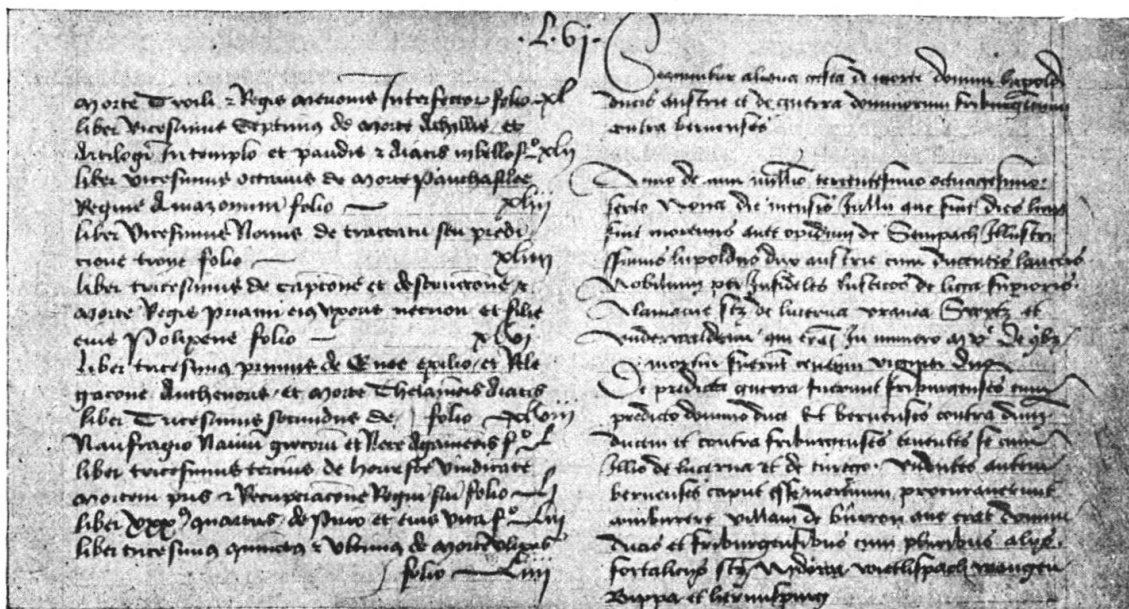 .L.vi.
morte Troili et Regis mennonis Interfector folio xl
liber vicesimus septimus de morte Achillis et
In templo et paridis et aiacis in bello fo xlii
liber vicesimus octavus de morte panthasilee
Regine Amazonum folio xliii
liber vicesimus Nonus de tractatu seu predi
cione troye folio xliiii
liber tricesimus de captione et destructione et
morte Regis priami eius uxoris necnon et filie
eius Polixene folio xlvi
liber tricesimus primus de Enee exilio et Rele
gacone Anthenoris et morte Thelamonis aiacis
liber Tricesimus secundus de folio xlviii
Naufragio Navium grecorum et Nece Agamenonis fo L
liber tricesimus tercius de horreste vindicante
mortem patris et Recuperacone Regni sui folio Li
liber xxxus quartus de pirro et eius vita fo Liii
liber tricesimus quintus et ultimus de morte ulixis
folio Liiii
Secuntur aliqua gesta de morte domini lupoldi
ducis austrie et de guerra dominorum friburgensium
contra bernenses
Anno domini millesimo tercentesimo octuagesimo
sexto Nona die mensis Jullii
ante opidum de Sempach Illustri
ssimus lupoldus dux austrie cum ducentis lanceis
Nobilium per Infideles rusticos de liga superioris
Alamanie scilicet de lucerna urania Swytz et
underwalden qui erant In numero
mortui fuerunt centum viginti duo
De predicta guerra fuerunt friburgenses cum
predicto domino duce Et bernenses contra dictum
ducem et contra friburgenses tenentes se cum
Illis de lucerna et de turego. Videntes autem
bernenses caput esse mortuum procuraverunt
villam de buren que erat domini
ducis et friburgensibus cum pluribus aliis
fortaliciis scilicet Nydowa wietlispach wangen
Bippa et